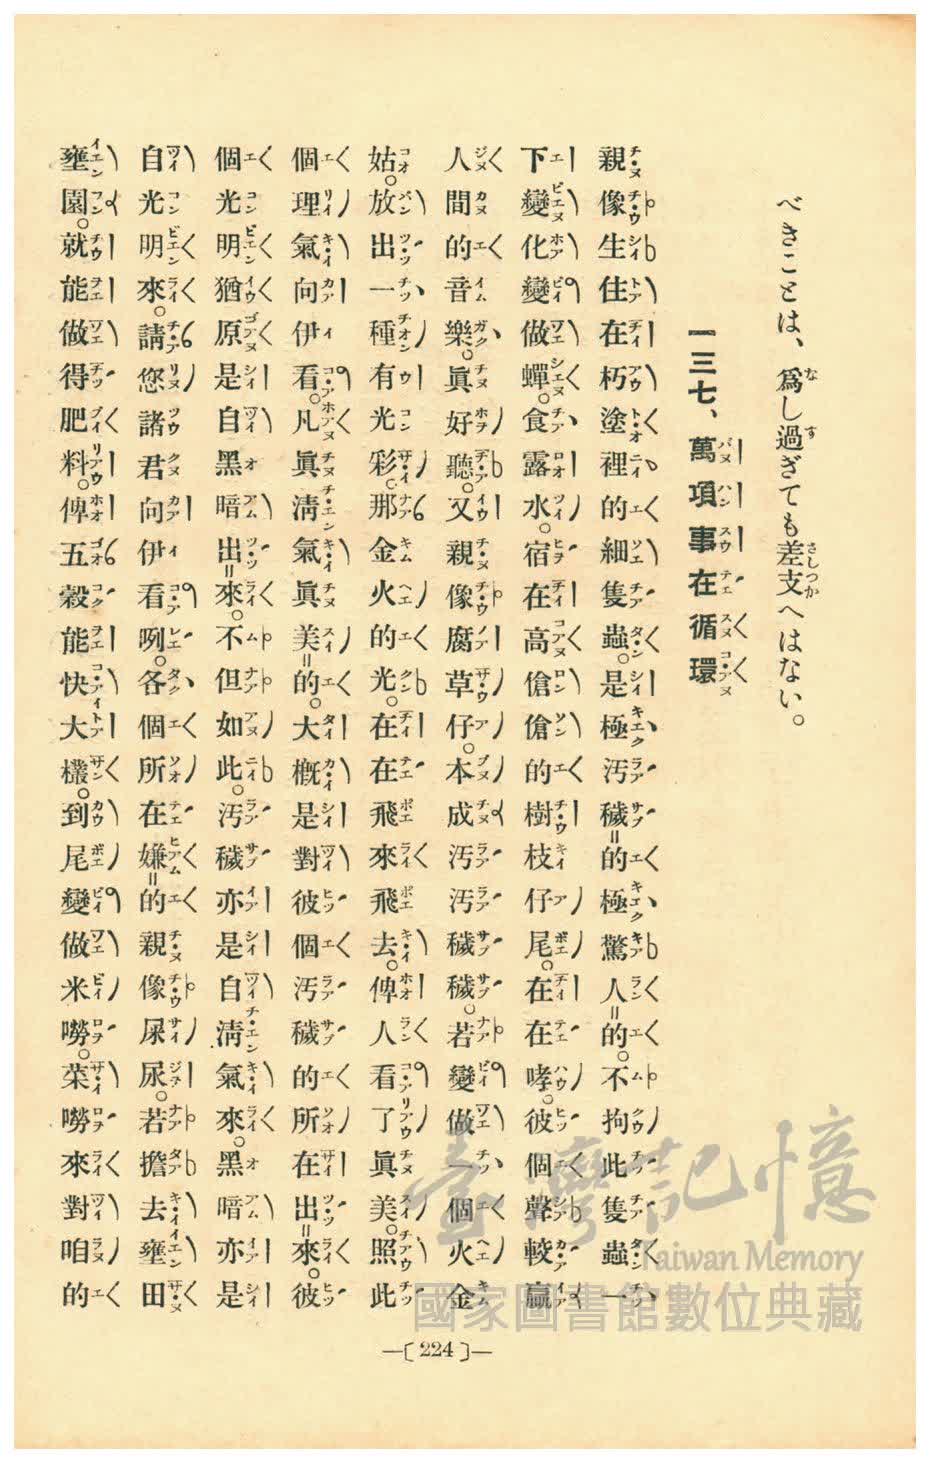 べきことは、爲し過ぎても差支へはない。
一三七、萬項事在循環
親像生住在朽塗裡的細隻蟲。是極汚穢=的極驚人=的。不拘此隻蟲一
下變化變做蟬。食露水。宿在高傖傖的樹枝仔尾。在在哮。彼個聲較贏
人間的音樂。眞好聽。又親像腐草仔。本成汚汚穢穢。若變做一個火金
姑。放出一種有光彩。那金火的光。在在飛來飛去。俾人看了眞美。照此
個理氣向伊看。凡眞淸氣眞美=的。大概是對彼個汚穢的所在出=來。彼
個光明猶原是自黑暗出=來。不但如此。汚穢亦是自淸氣來。黑暗亦是
自光明來。請您諸君向伊看咧。各個所在嫌=的親像屎尿。若擔去壅田
壅園。就能做得肥料。俾五穀能快大欉。到尾變做米嘮。菜嘮來對咱的
—〔224〕—
臺灣記憶
Taiwan Memory
國家圖書館數位典藏